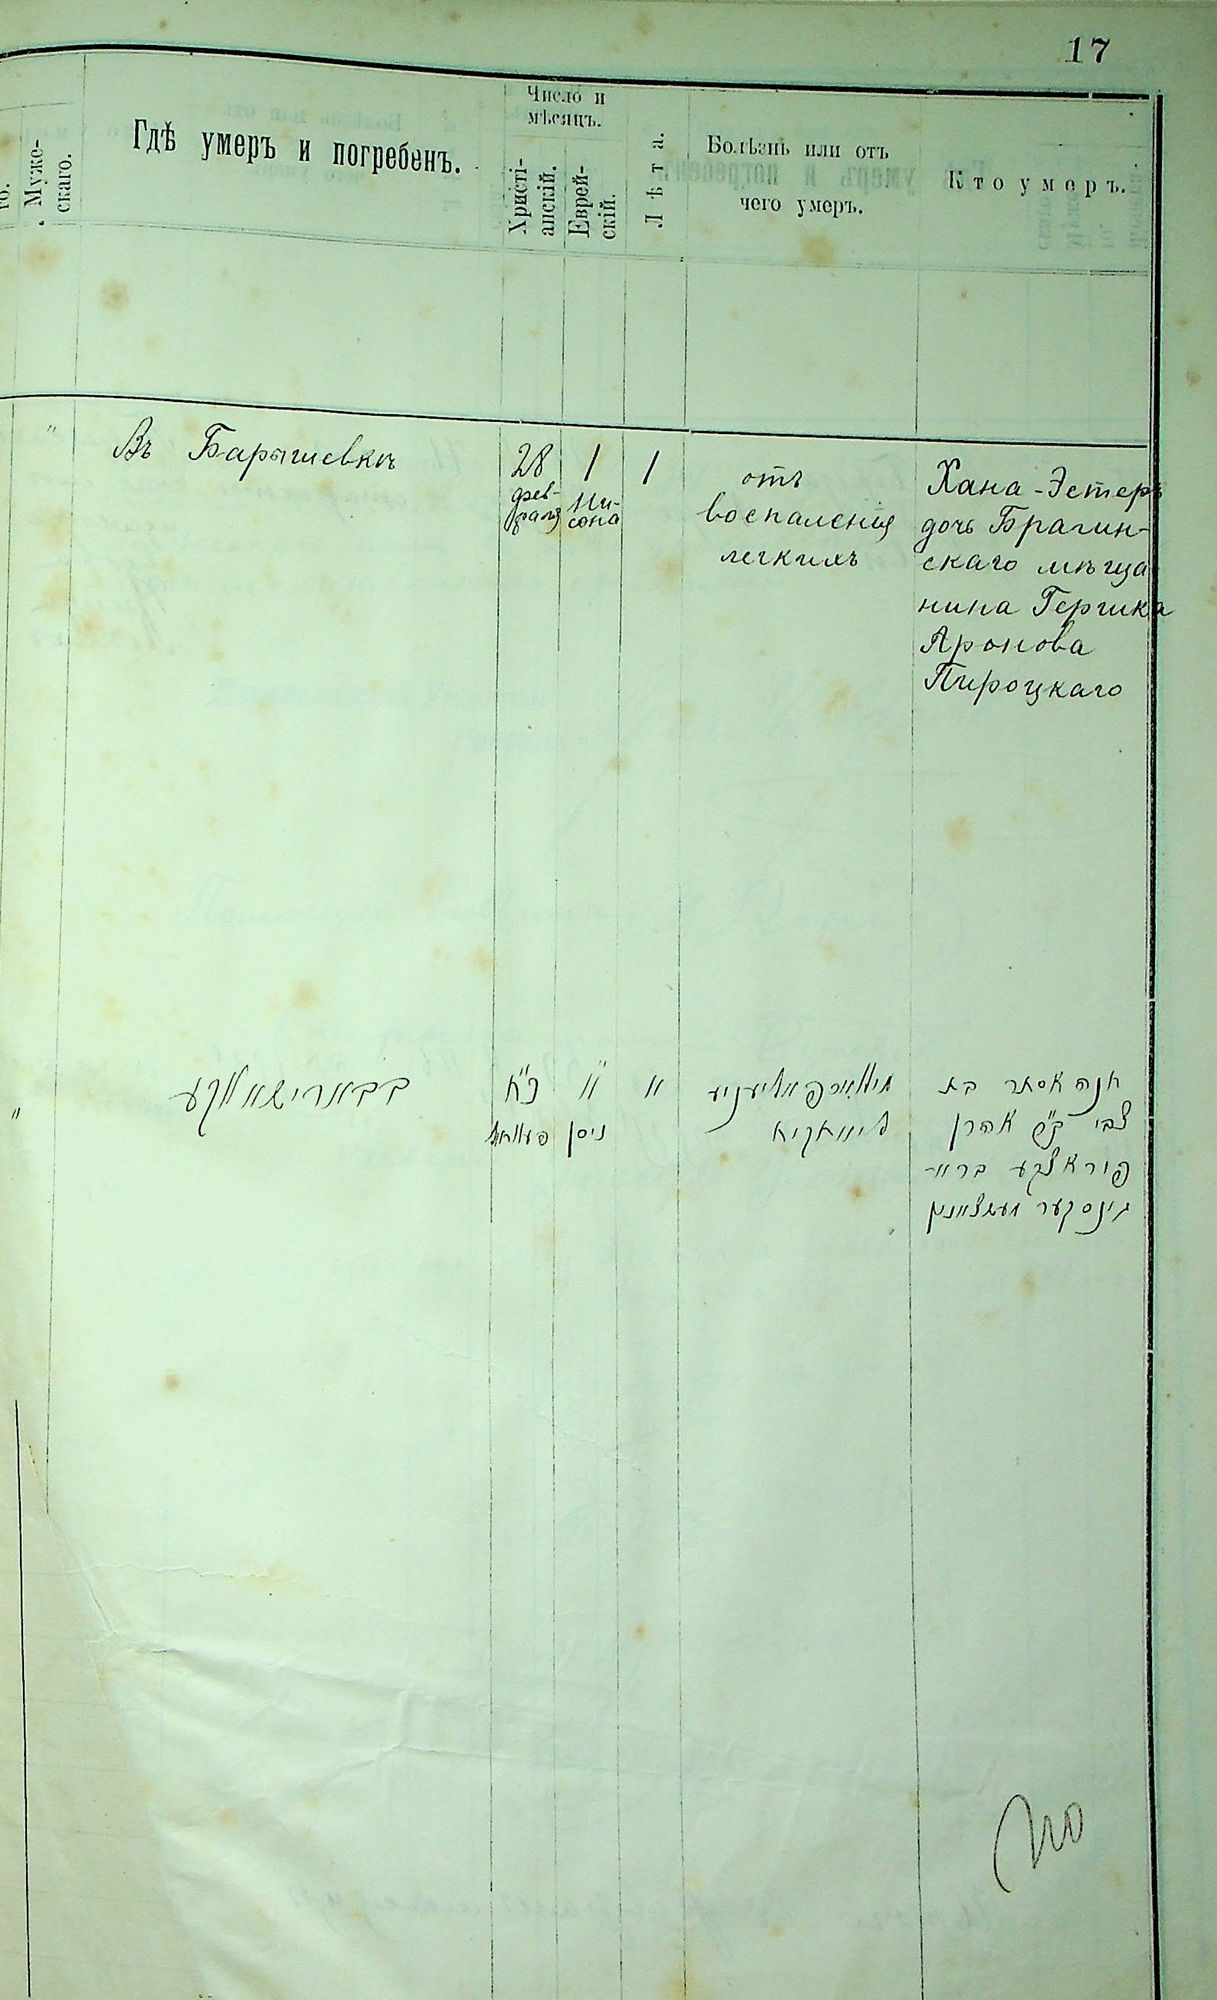 17
го.
Муже-
скаго.
Гдѣ умеръ и погребенъ.
Число и
мѣсяцъ.
Христі-
анскій.
Еврей-
скій.
Лѣта.
Болѣзнь или отъ
чего умеръ.
Кто умеръ.
"
Въ Барышевкѣ
28
фев-
раля
1
Ни-
сона
1
отъ
воспаленія
легкихъ
Хана-Эстеръ
дочь Брагин-
скаго мѣща-
нина Гершка
Аронова
Пироцкаго
"
בבארישאווקע
כ"ח
א"
ניסן
"
חנה אסתר בת
צבי אהרן